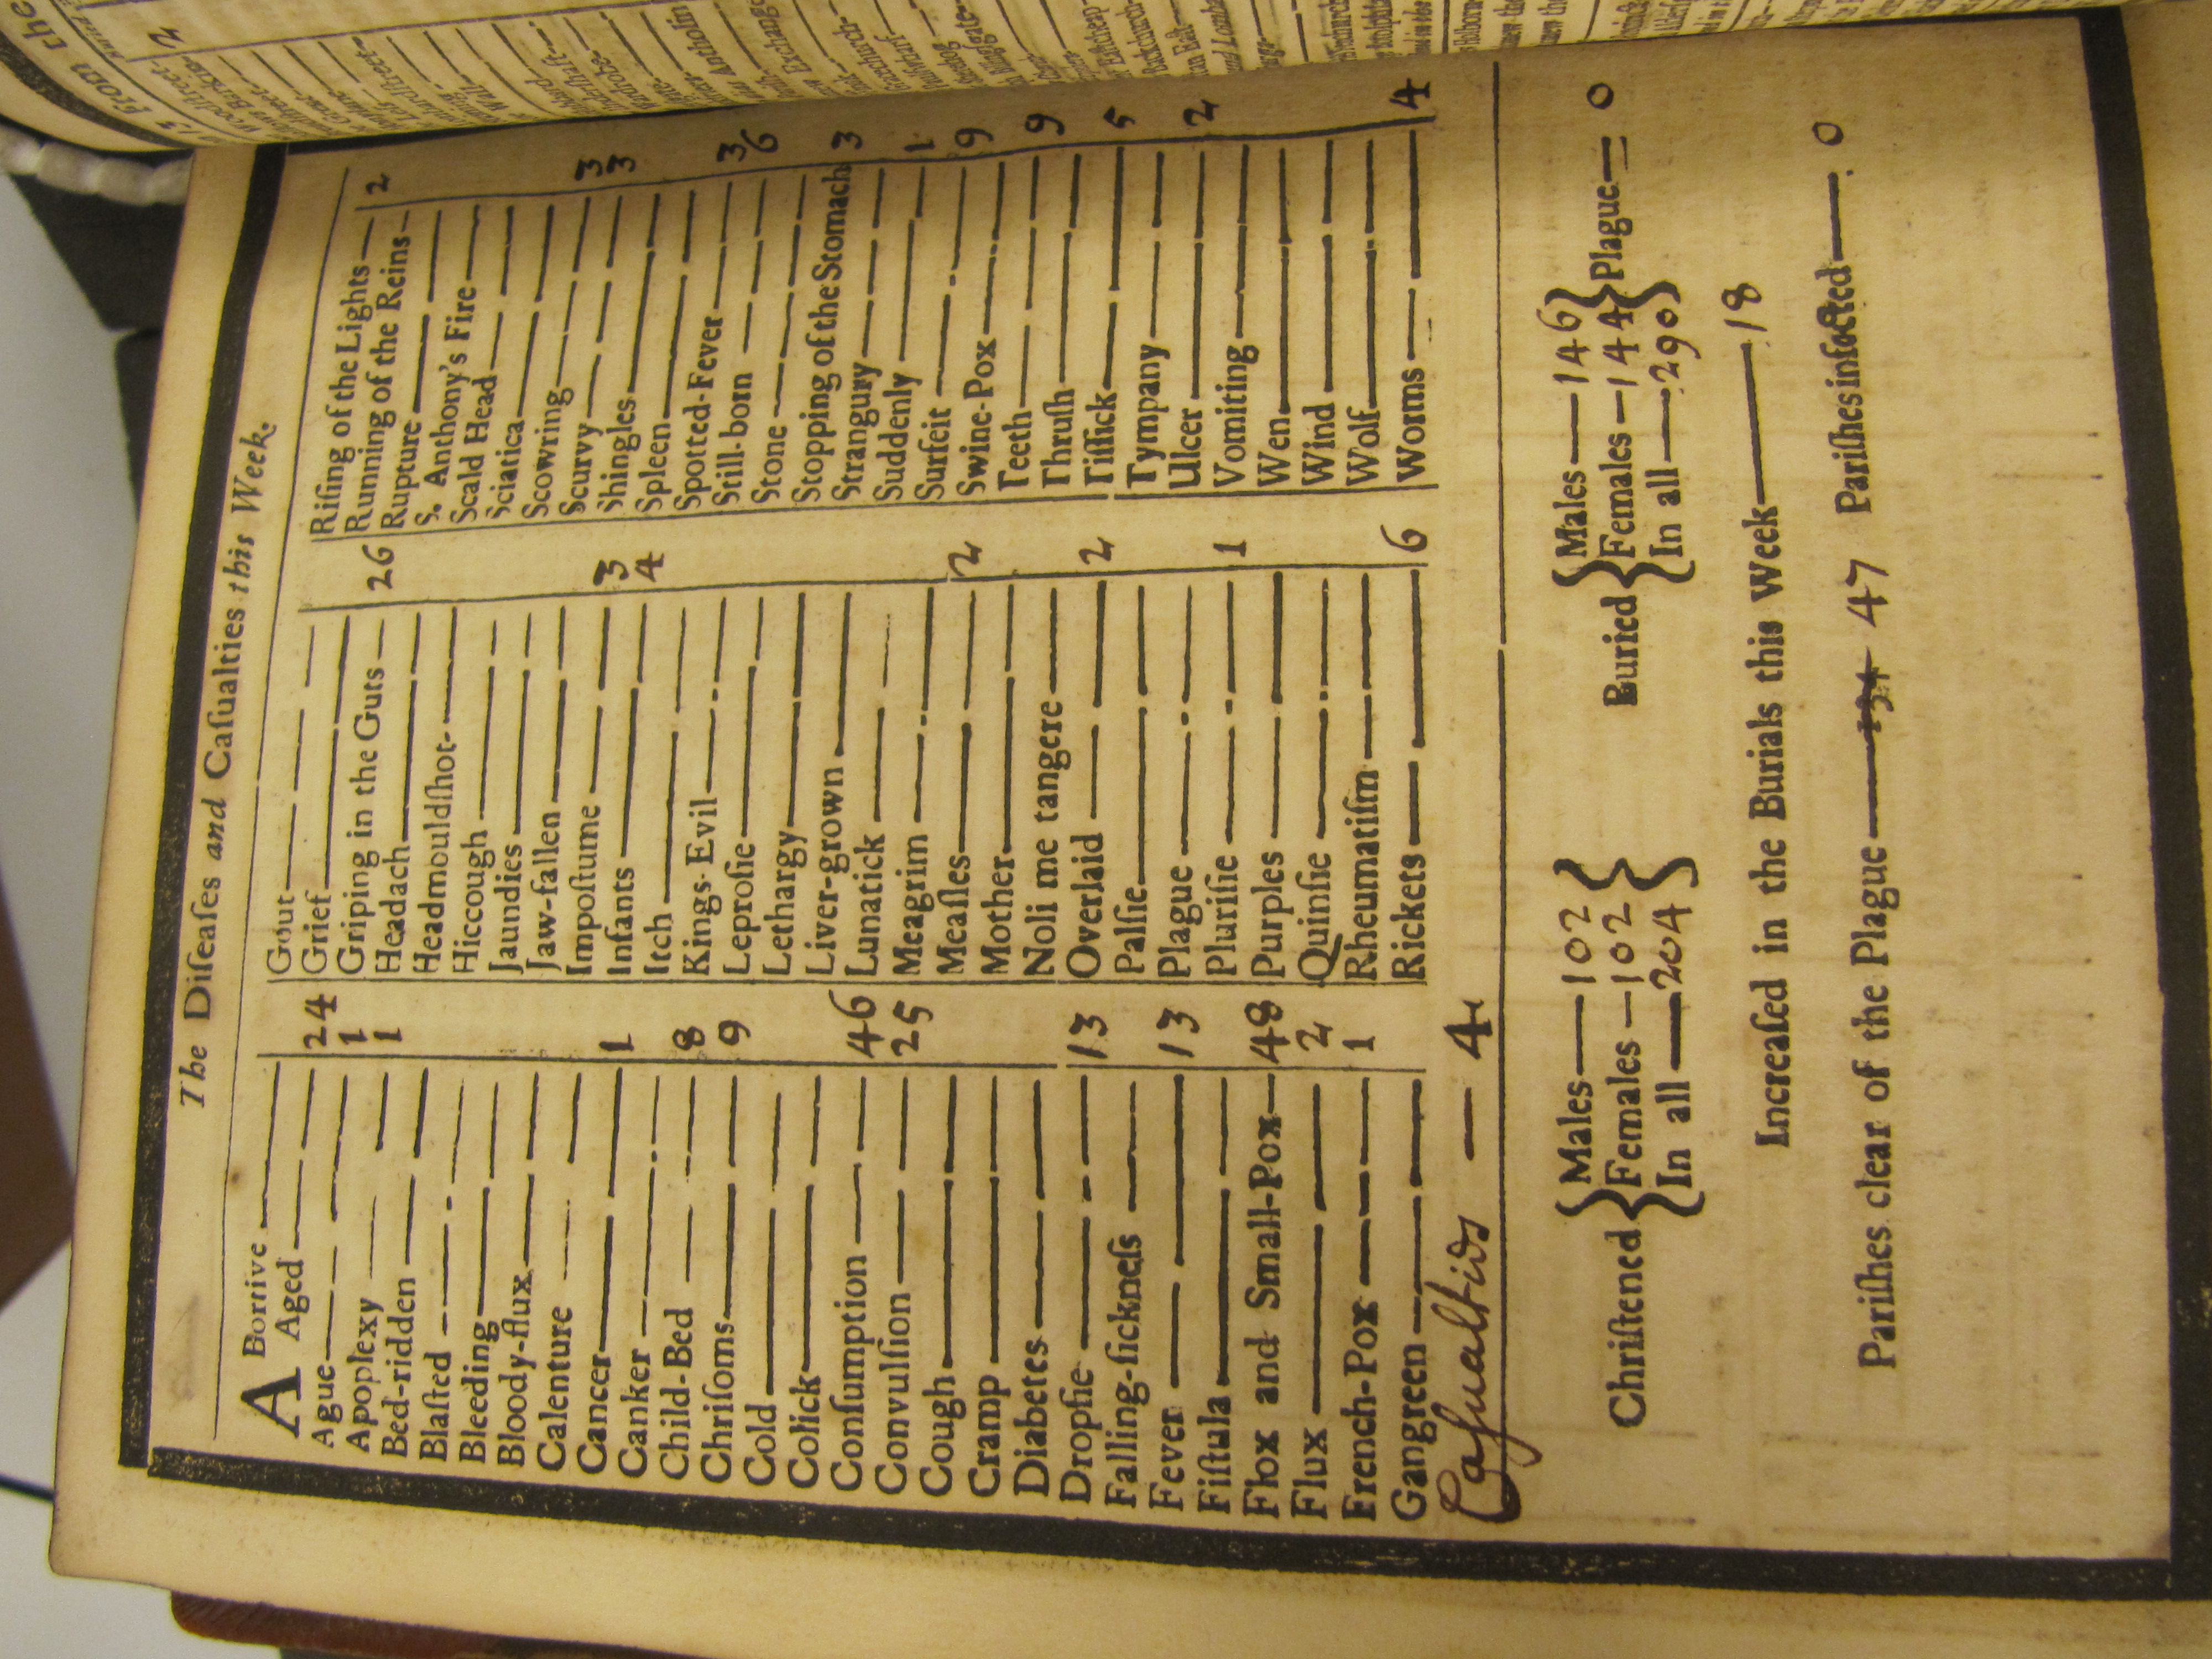 The Diſeaſes and Caſualties this Week.
ABortive
Aged 24
Ague 1
Apoplexy 1
Bed-ridden
Blaſted
Bleeding
Bloody-flux
Calenture
Cancer 1
Canker
Child-Bed 8
Chriſoms 9
Cold
Colick
Conſumption 46
Convulſion 25
Cough
Cramp
Diabetes
Dropſie 13
Falling-ſickneſs
Fever 13
Fiſtula
Flox and Small-Pox 48
Flux 2
French-Pox 1
Gangreen
Caſualtids — 4
Gout
Grief
Griping in the Guts 26
Headach
Headmouldſhot
Hiccough
Jaundies
Jaw-fallen
Impoſtume 3
Infants 4
Itch
Kings-Evil
Leproſie
Lethargy
Liver-grown
Lunatick
Meagrim
Meaſles 2
Mother
Noli me tangere
Overlaid 2
Palſie
Plague
Pluriſie 1
Purples
Quinſie
Rheumatiſm
Rickets 6
Riſing of the Lights 2
Running of the Reins
Rupture
S. Anthony's Fire
Scald Head
Sciatica
Scowring 3
Scurvy 3
Shingles
Spleen
Spotted-Fever 3
Still-born 6
Stone
Stopping of the Stomach 3
Strangury
Suddenly 1
Surfeit 9
Swine-Pox
Teeth 9
Thruſh
Tiſſick 5
Tympany
Ulcer 2
Vomiting
Wen
Wind
Wolf
Worms 4
Chriſtened { Males — 102 Females — 102 In all — 204 }
Buried { Males — 146 Females — 144 In all — 290 } Plague — 0
Increaſed in the Burials this Week — 18
Pariſhes clear of the Plague — 134 47 Pariſhes infected — 0